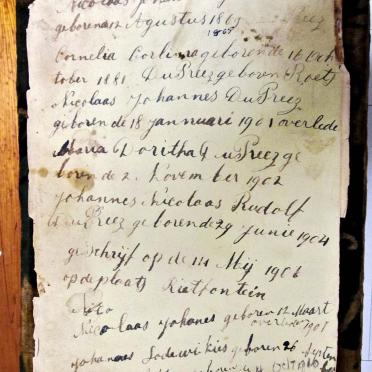 Nicolaas Joh
geboren 12 Agustus 1869 Preez
1868
Cornelia Corlina geboren de 16 Och
tober 1881 Du Preez geboren Roets
Nicolaas Johannes Du Preez
geboren de 18 jannuari 1901 overlede
Maria Doritha Du Preez ge
boren de 2. November 1902
Johannes Nicolaas Rudolf
Du Preez geboren de 29 Junie 1904
geschrijf op de 14 Mij 1906
op de plaats Rietfontein
Nicolaas Johanes geboren 12 Maart
overleden 1907
Johannes Lodewikus geboren 26 Septem